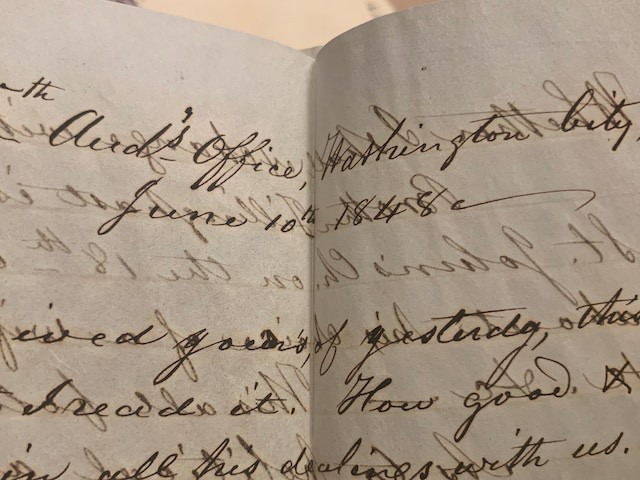 th
Aud's Office, Washington City,
June 10th 1848
ived yours, of yesterdy, this
I read it. How good &
in all his dealings with us.